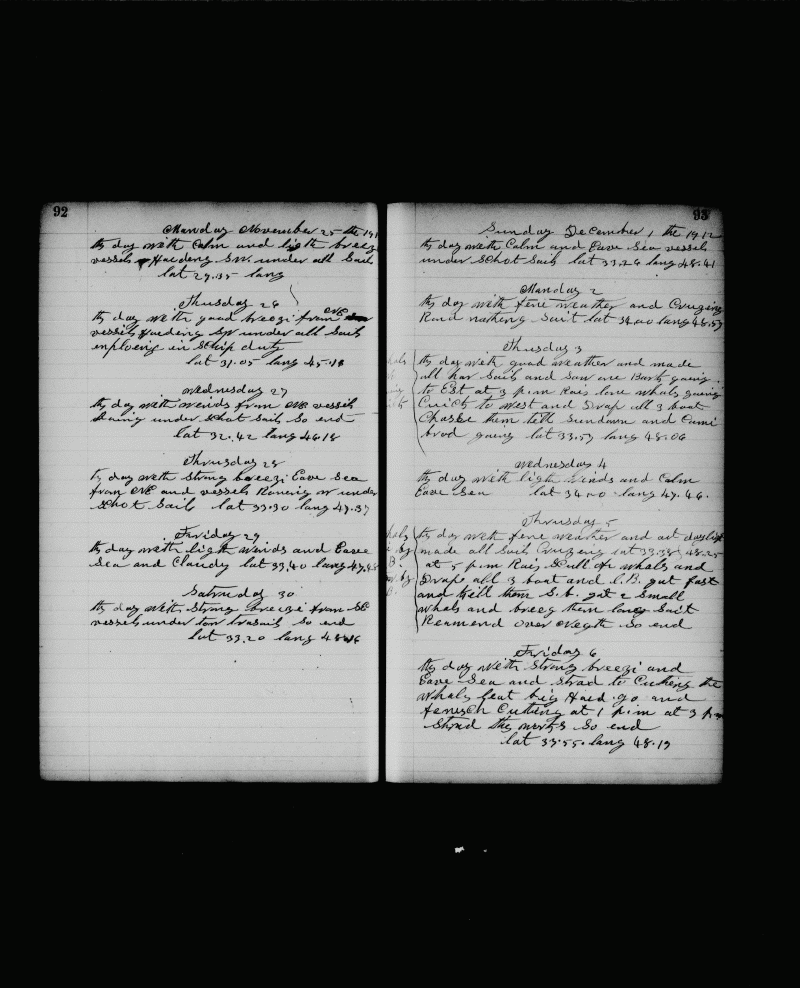 92
Manday November 25 the 191
thy day with Calm and ligth breezi
vessels Haeding S.W. under all Sails
lat 29.35 lang
Thusday 26
thy day with good breezi from NE
vessels Haeding SW under all Sails
enploeing in Schip duty
lat 31.05 lang 45.18
wednusday 27
thy day with winds from NE vessels
under Schot Sails So end
lat 32.42 lang 46.18
Thrusday 28
thy day with Strong breezi Eave Sea
from NE and vessels under
Schot Sails lat 33.30 lang 47.37
Friday 29
thy day with ligth winds and Eave
Sea and Claudy lat 33.40 lang 47.48
Satruday 30
thy day with Strong breezi from SE
vessels under tow So end
lat 33.20 lang 48.46
93
Sunday December 1 the 1912
thy day with Calm and Eave Sea vessels
under Schot Sails lat 33.26 lang 48.41
Manday 2
thy day with fene weather and Cruzing
Raid natheng Sait lat 34.00 lang 48.57
Thusday 3
thy day with good weather and made
all har Sails and Saw one Bark going
to Est at 3 p.m Rais lone whals going
to West and Drap all 3 boat
Chasse them tell Sundawn and Cami
brod going lat 33.57 lang 48.06
Wednesday 4
thy day with ligth Winds and Calm
Eave Sea lat 34.00 lang 47.46.
Thrusday 5
thy day with fene weather and at dayligt
made all Sails Cruzeing lat 33.38 48.25
at 5 p.m Rais Scull of whals and
Drap all 3 boat and L.B. gut fast
and kill them S.b. gat 2 Small
whals and breeg them Sait
Reamend over Negth So end
Friday 6
thy day with Strong breezi and
Eave Sea and Strad to Cutting the
whals feat big Haed go and
fenesch Cutting at 1 p.m at 3 p.m
Strad the So end
lat 33.55. lang 48.19